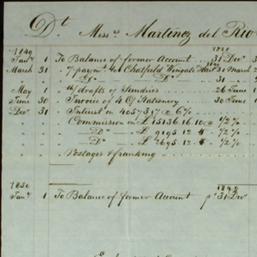 Dt Messrs Martinez del Rio
1849 1849
Jany 1 To Balance of former Account 31 Decr
March 31 " 7 paymts Chatfield 31 March
" " " Do Do 31
May 1 " drafts of Sundries 26 June
June 30 " Invoice of Stationery 30 June
Decr 31 " Interest in 4057317 @ 6%
" " " Commission on £ 15136.16.10 @ 1/2 %
" " " Do " £ 9195 12.4 " 1/2 %
" " " Do " £ 2695 12. " 1/2 %
" " " Postages & franking
1850 1849
Jany 1 To Balance of former Account pr 31 Decr